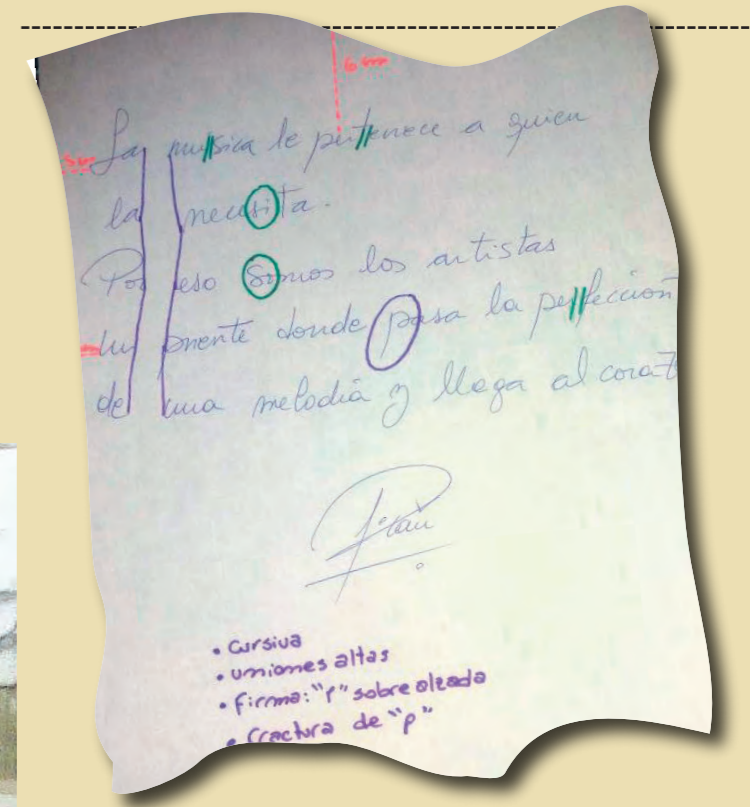 6 cm
5 cm
La musica le pertenece a quien
la necesita.
Por eso somos los artistas
un puente donde pasa la perfección
de una melodía y llega al coraz
• cursiva
• uniones altas
• firma: "P" sobre alzada
• fractura de "p"